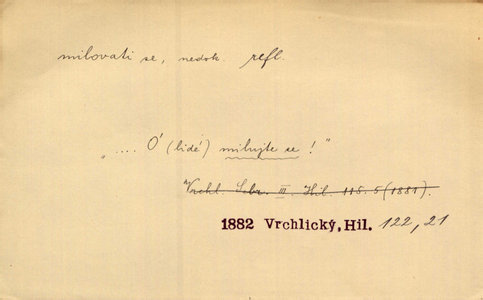 milovati se, nedok. refl.
„ .... Ó (lidé) milujte se ! "
Vrchl. Sebr. III. Hil. 115.5 (1881).
1882 Vrchlický, Hil. 122, 21